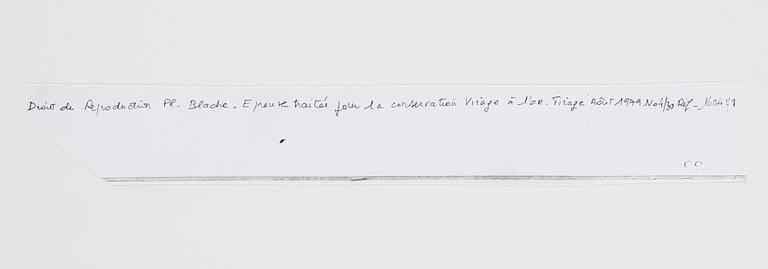 Droit de Reproduction Ph. Blache. Epreuve traitée pour la conservation Virage à l'or. Tirage Août 1979. No 4/30 Réf.
CO.